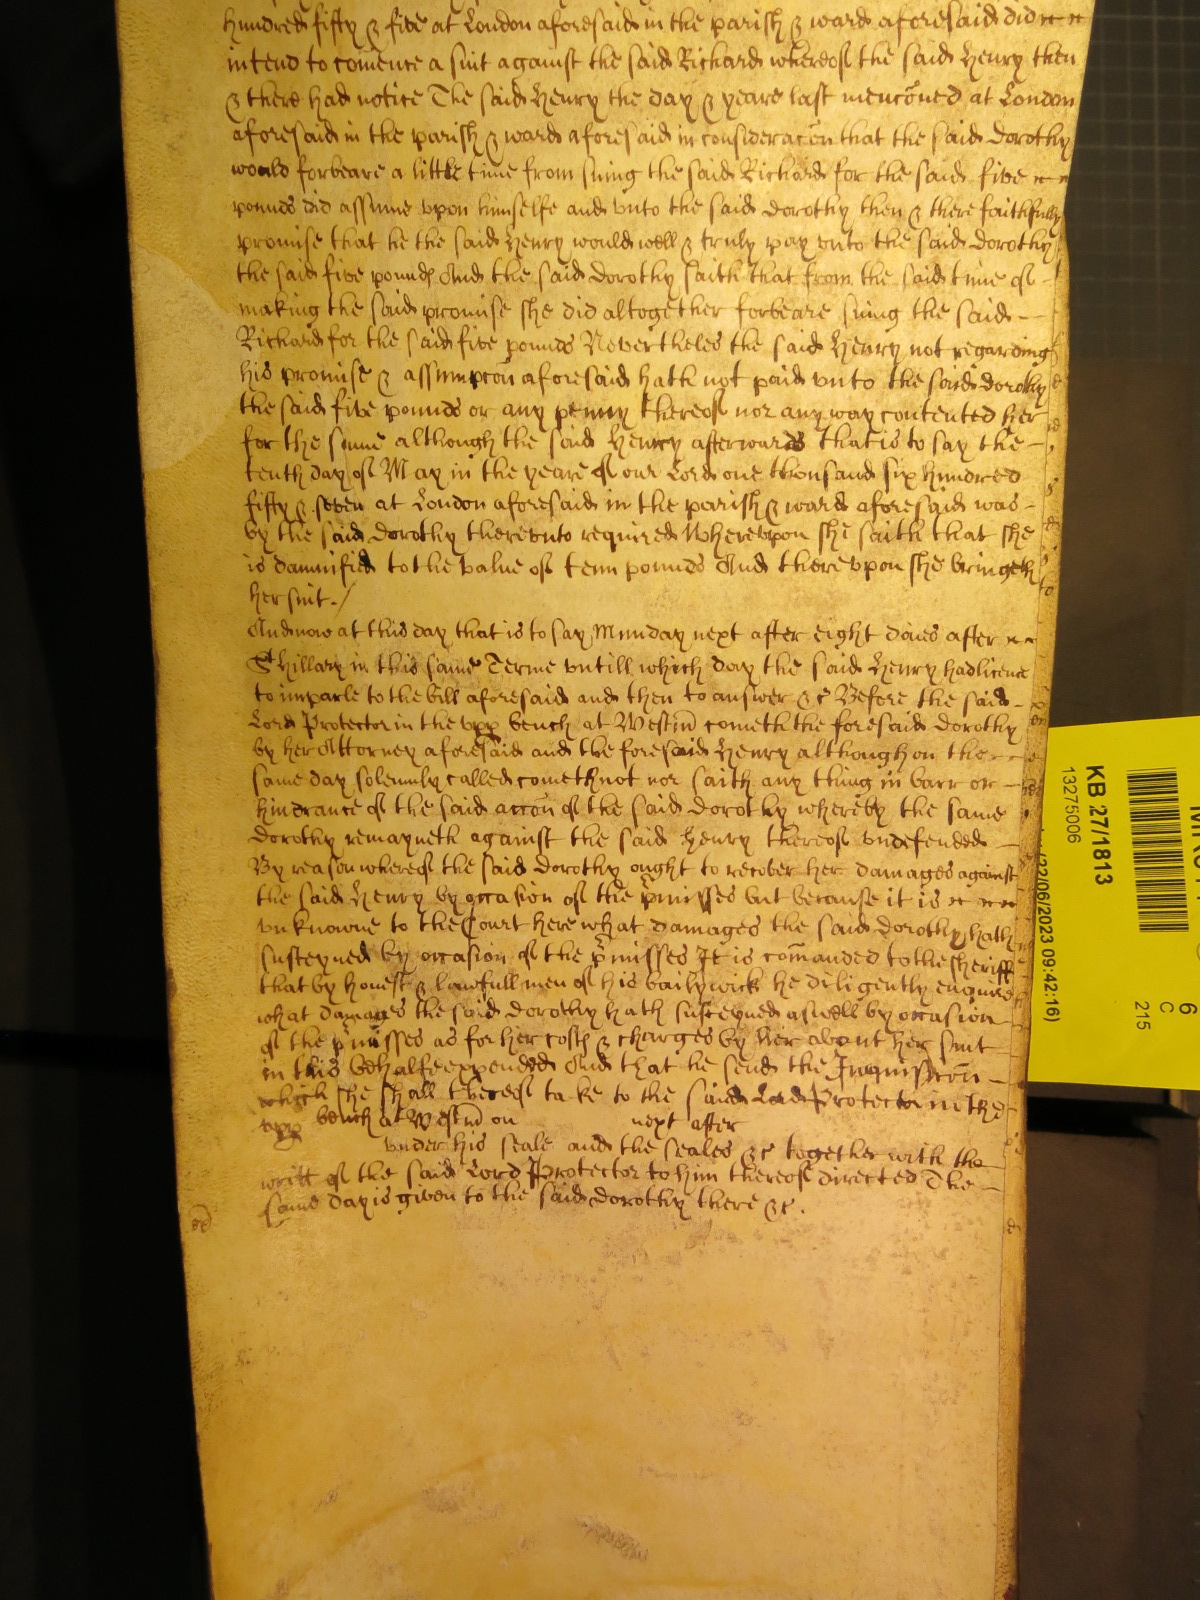 hundred fifty & five at London aforesaid in the parish & ward aforesaid did
intend to comence a suit against the said Richard whereof the said Henry then
& there had notice The said Henry the day & yeare last mencōned at London
aforesaid in the parish & ward aforesaid in consideracōn that the said Dorothy
would forbeare a little time from suing the said Richard for the said five
pounds did assume vpon himselfe and vnto the said Dorothy then & there faithfully
promise that he the said Henry would well & truly pay vnto the said Dorothy
the said five pounds And the said Dorothy saith that from the said time of
making the said promise she did altogether forbeare suing the said
Richard for the said five pounds Nevertheles the said Henry not regarding
his promise & assumpcōn aforesaid hath not paid vnto the said Dorothy
the said five pounds or any penny thereof nor any way contented her
for the same although the said Henry afterwards that is to say the
tenth day of May in the yeare of our Lord one thousand six hundred
fifty & seven at London aforesaid in the parish & ward aforesaid was
by the said Dorothy therevnto required Wherevpon she saith that she
is damnified to the value of tenn pounds And therevpon she bringeth
her suit./
And now at this day that is to say Munday next after eight daies after
St Hillary in this same Terme vntill which day the said Henry had licence
to imparle to the bill aforesaid and then to answer &c Before the said
Lord Protector in the vpp bench at Westm̄ cometh the foresaid Dorothy
by her Attorney aforesaid and the foresaid Henry although on the
same day solemnly called cometh not nor saith any thing in barr or
hinderance of the said accōn of the said Dorothy whereby the same
Dorothy remayneth against the said Henry thereof vndefended
By reason whereof the said Dorothy ought to recover her damages against
the said Henry by occasion of the p̄misses but because it is
vnknowne to the Court here what damages the said Dorothy hath
susteyned by occasion of the p̄misses It is com̄anded to the sheriff
that by honest & lawfull men of his bailywick he diligently enquire
what damages the said Dorothy hath susteyned aswell by occasion
of the p̄misses as for her costs & charges by her about her suit
in this behalfe expended And that he send the Inquisicōn
which he shall thereof take to the said Lord Protector in the
vpp bench at Westm̄ on next after
vnder his seale and the seales &c together with the
writt of the said Lord Protector to him thereof directed The
same day is given to the said Dorothy there &c.
KB 27/1813
13275006
22/06/2023 09:42:16)
6
C
215